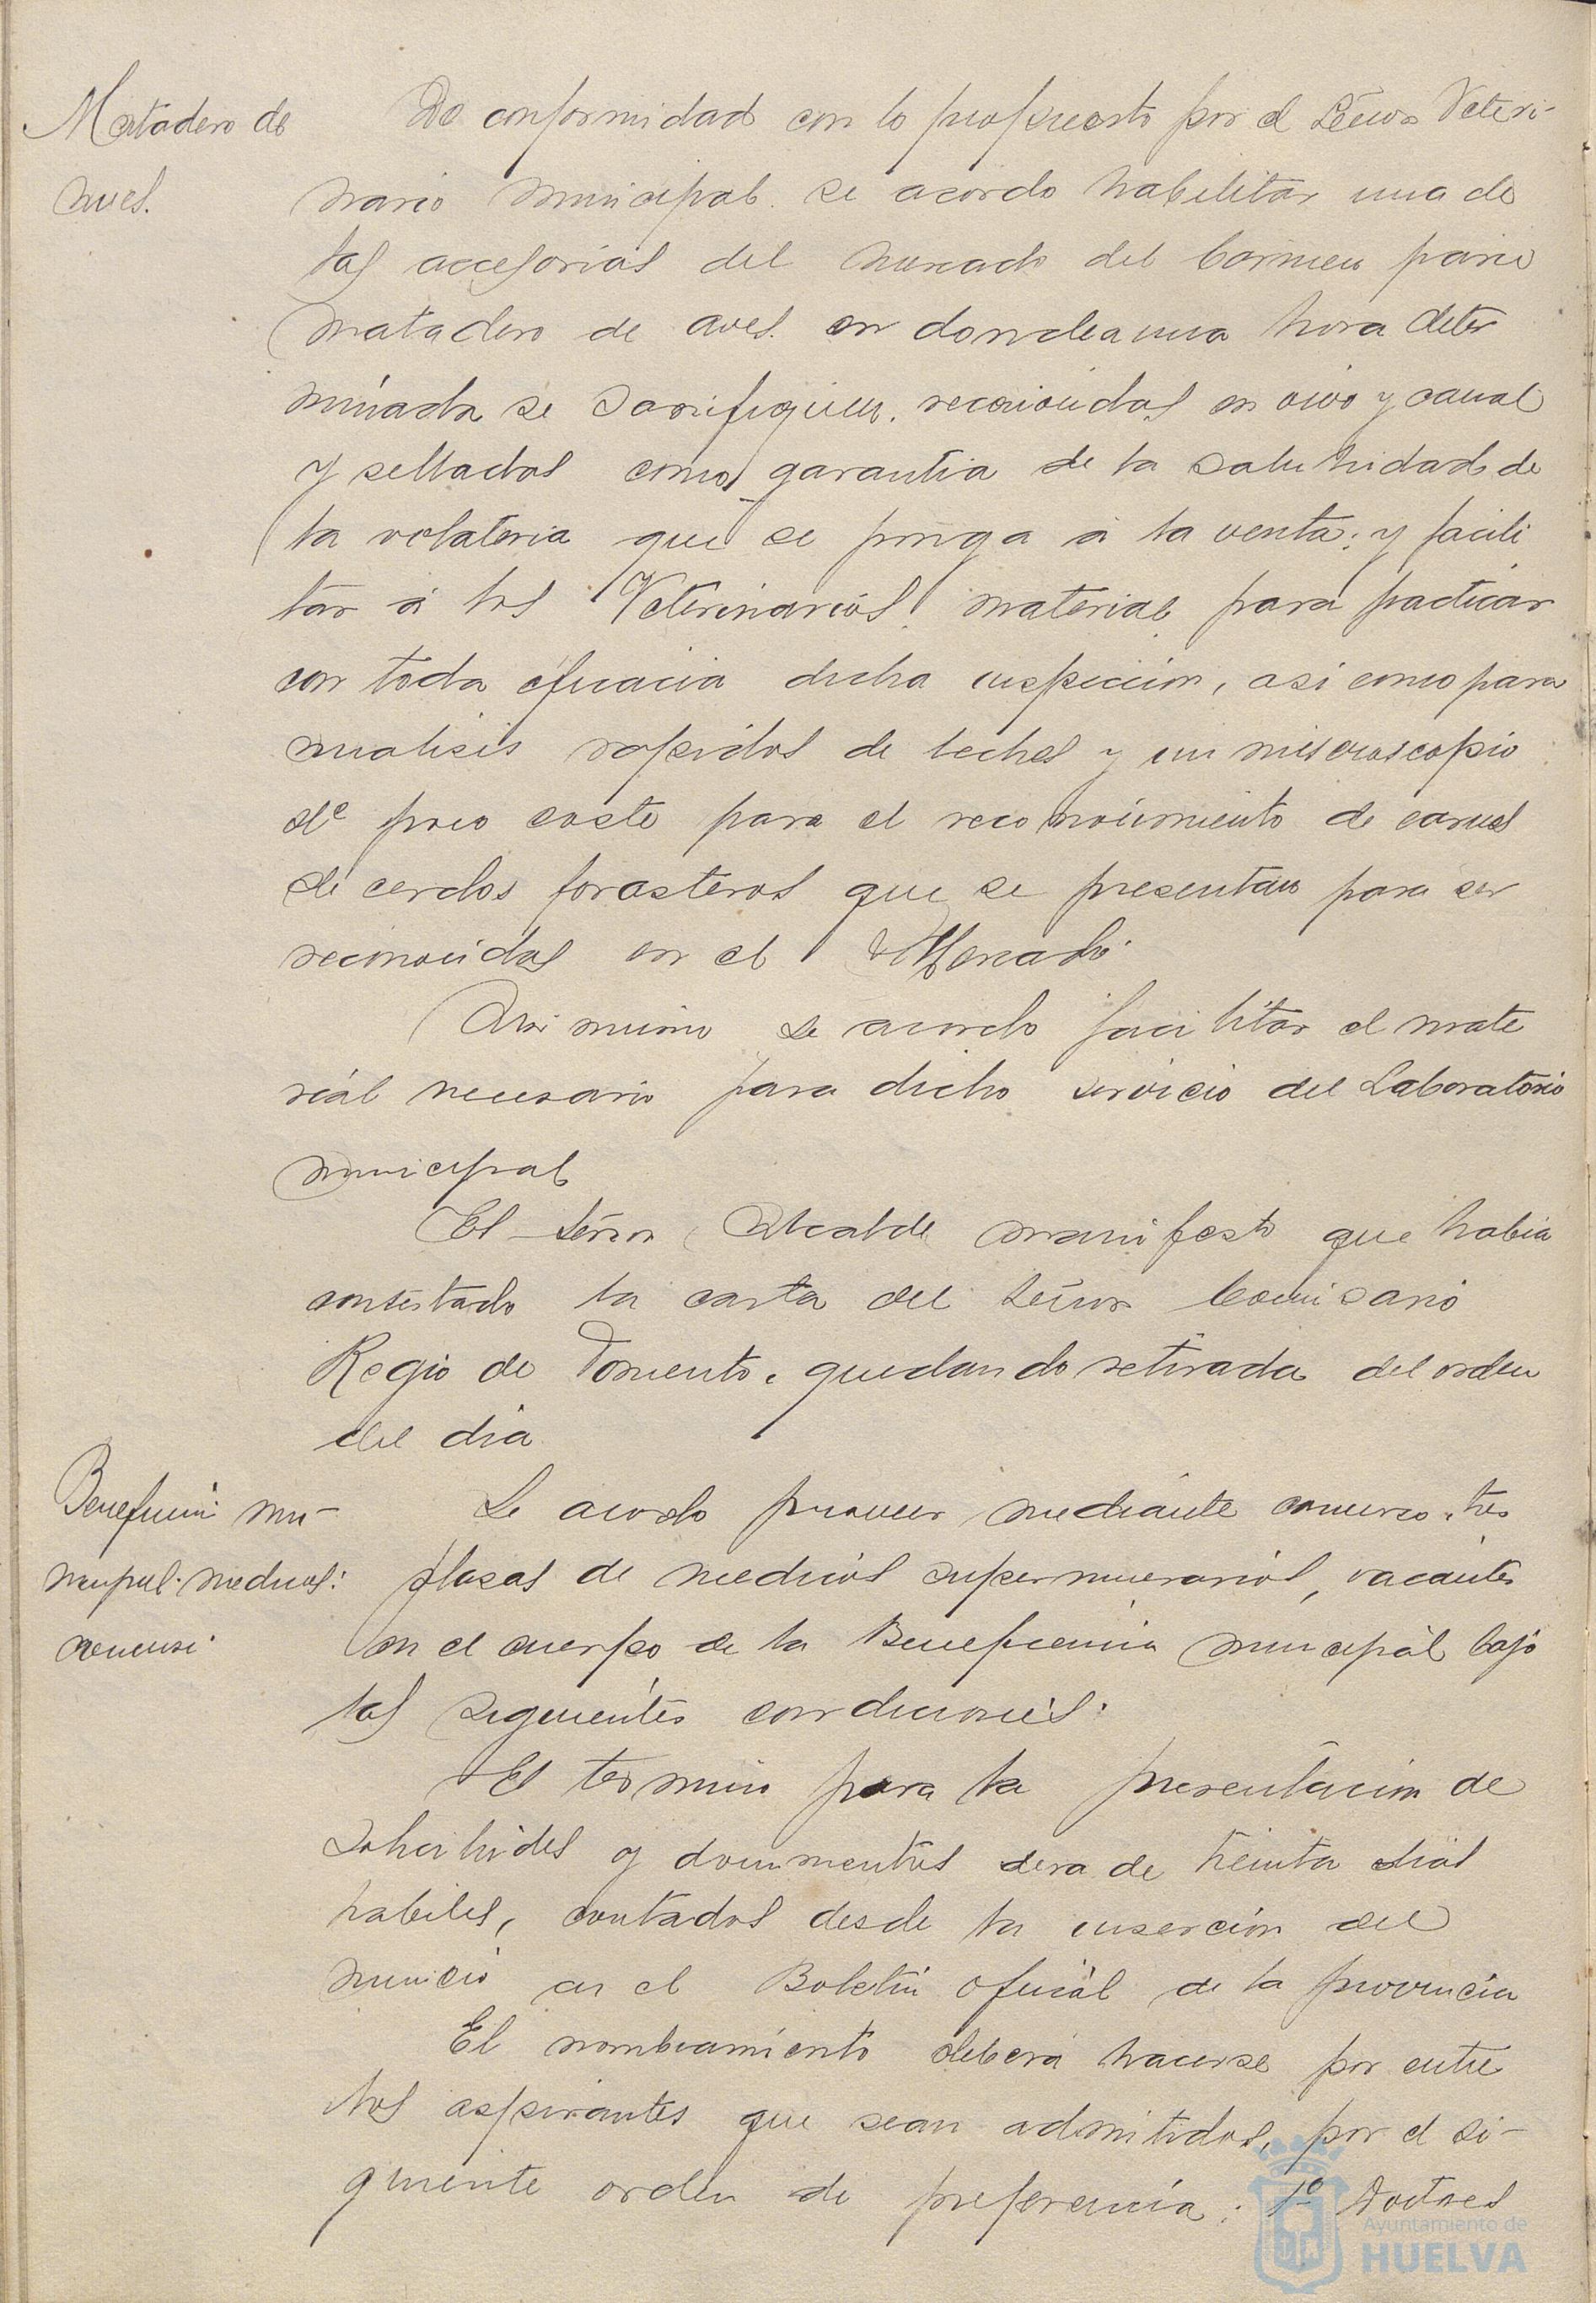 Matadero de
aves.
De conformidad con lo propuesto por el Señor Veteri-
nario municipal se acordo habilitar una de
las accesorias del mercado del Carmen para
matadero de aves. en donde a una hora deter
minada se sacrifiquen. reconocidas en vivo y canal
y selladas como garantia de la salubridad de
la volateria que se ponga á la venta; y facili
tar á los Veterinarios material para practicar
con toda eficacia dicha inspeccion, asi como para
analisis rapidos de leches y un miscroscopio
de poco coste para el reconocimiento de carnes
de cerdos forasteros que se presentan para ser
reconocidas en el Mercado.
Asi mismo se acordo facilitar el mate
rial necesario para dicho servicio del Laboratorio
municipal
El Señor Alcalde manifesto que habia
contestado la carta del Señor Comisario
Regio de Fomento, quedando retirada del orden
del dia
Beneficencia mu-
nicipal. medicos:
Se acordo proveer mediante concurso, tres
plazas de medicos supernumerarios, vacantes
en el cuerpo de la Beneficencia municipal bajo
las siguientes condiciones:
El termino para la presentacion de
solicitudes y documentos sera de treinta dias
habiles, contados desde la insercion del
anuncio en el Boletin oficial de la provincia
El nombramiento deberá hacerse por entre
los aspirantes que sean admitidos, por el si-
guiente orden de preferencia: 1º Doctores
Ayuntamiento de
HUELVA